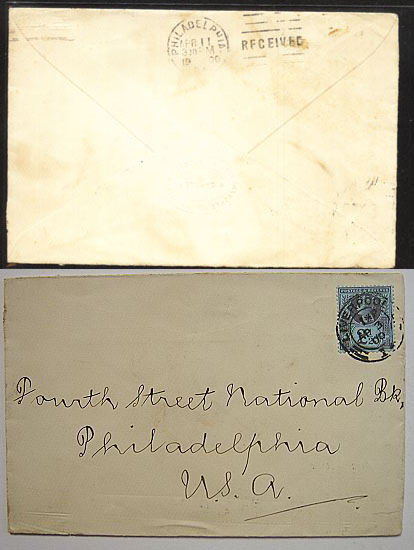 PHILADELPHIA
APR 11
RECEIVED
POSTAGE & REVENUE
LIVERPOOL
Fourth Street National Bk,
Philadelphia
U.S.A.